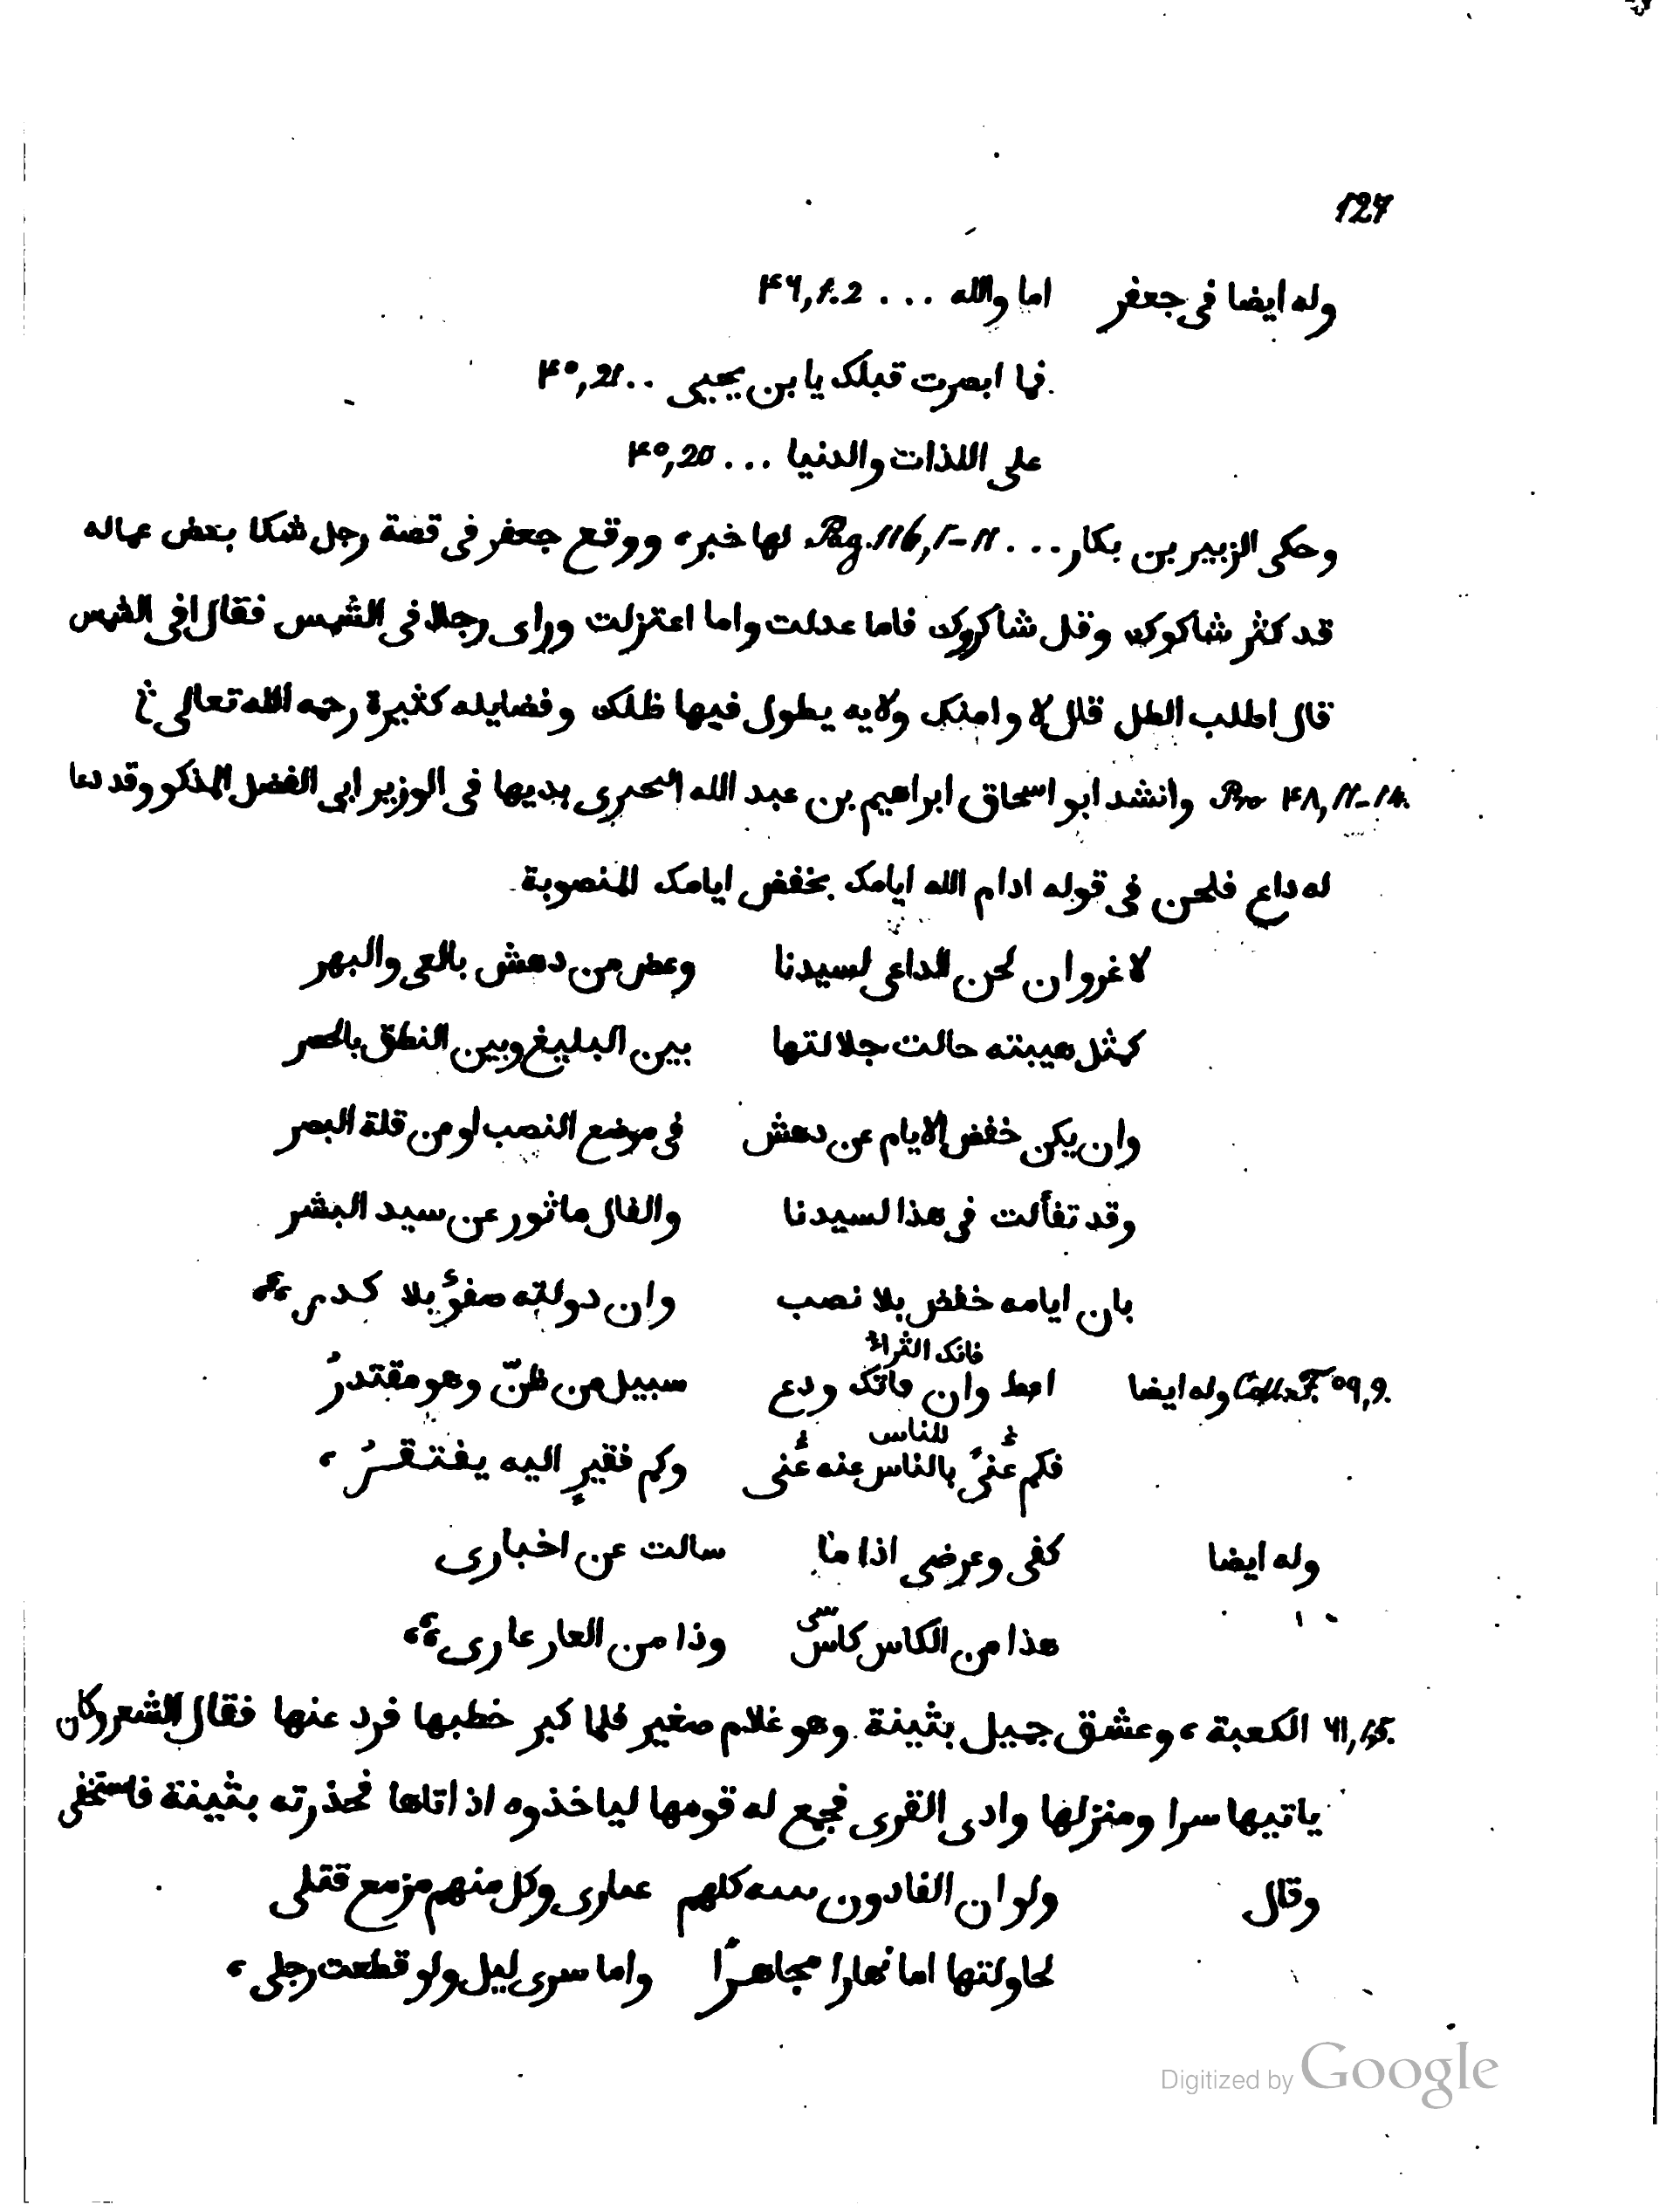 127
وله ايضا فى جعفر اما والله ... ۴۶,1.2
فما ابصرت قبلك يا بن يحيى .. ۴۰,21
على اللذات والدنيا ... ۴۰,20
وحكى الزبير بن بكار ... Pag. 116, 1-11 لها خبره ووقع جعفر فى قصة رجل شكا بعض عماله
قد كثر شاكوك وقل شاكروك فاما عدلت واما اعتزلت وراى رجلا فى الشمس فقال افى الشمس
قال اطلب الظل قال لا وامنك ولايه يطول فيها ظلك وفضايله كثيرة رحمه الله تعالى
Pro ۴۸, 11-14. وانشد ابو اسحاق ابراهيم بن عبد الله بديها فى الوزير ابى الفضل المذكو وقد دعا
له داع فلحن فى قوله ادام الله ايامك بخفض ايامك المنصوبة
لا غروان لحن الداعى لسيدنا وغض من دهش بالعى والبهر
كمثل هيبته حالت جلالتها بين البليغ وبين النطق بالحصر
وان يكن خفض الايام عن دهش فى موضع النصب او من قلة البصر
وقد تفألت فى هذا لسيدنا والفال ماثور عن سيد البشر
بان ايامه خفض بلا نصب وان دولته صفوٌ بلا كدر
فانك الثراءُ
۵۹,9. وله ايضا اعط وان فاتك ودع سبيل من ظنّ وهو مقتدرُ
للناس
فكم غنىً بالناس عنه غنى وكم فقيرٍ اليه يفتقرُ
وله ايضا كفى وعرضى اذا ما سالت عن اخبارى
سى
هذا من الكاس كاسٌ وذا من العار عارى
۶۱,15. الكعبة ، وعشق جميل بثينة وهو غلام صغير فلما كبر خطبها فرد عنها فقال الشعر وكان
ياتيها سرا ومنزلها وادى القرى فجمع له قومها لياخذوه اذ اتاها فحذرته بثينة فاستخفى
وقال ولو ان الفا دون كلهم غيارى وكل منهم مزمع قتلى
لحاولتها اما نهارا مجاهرًا واما سرى ليل ولو قطعت رجلى ،
Digitized by Google